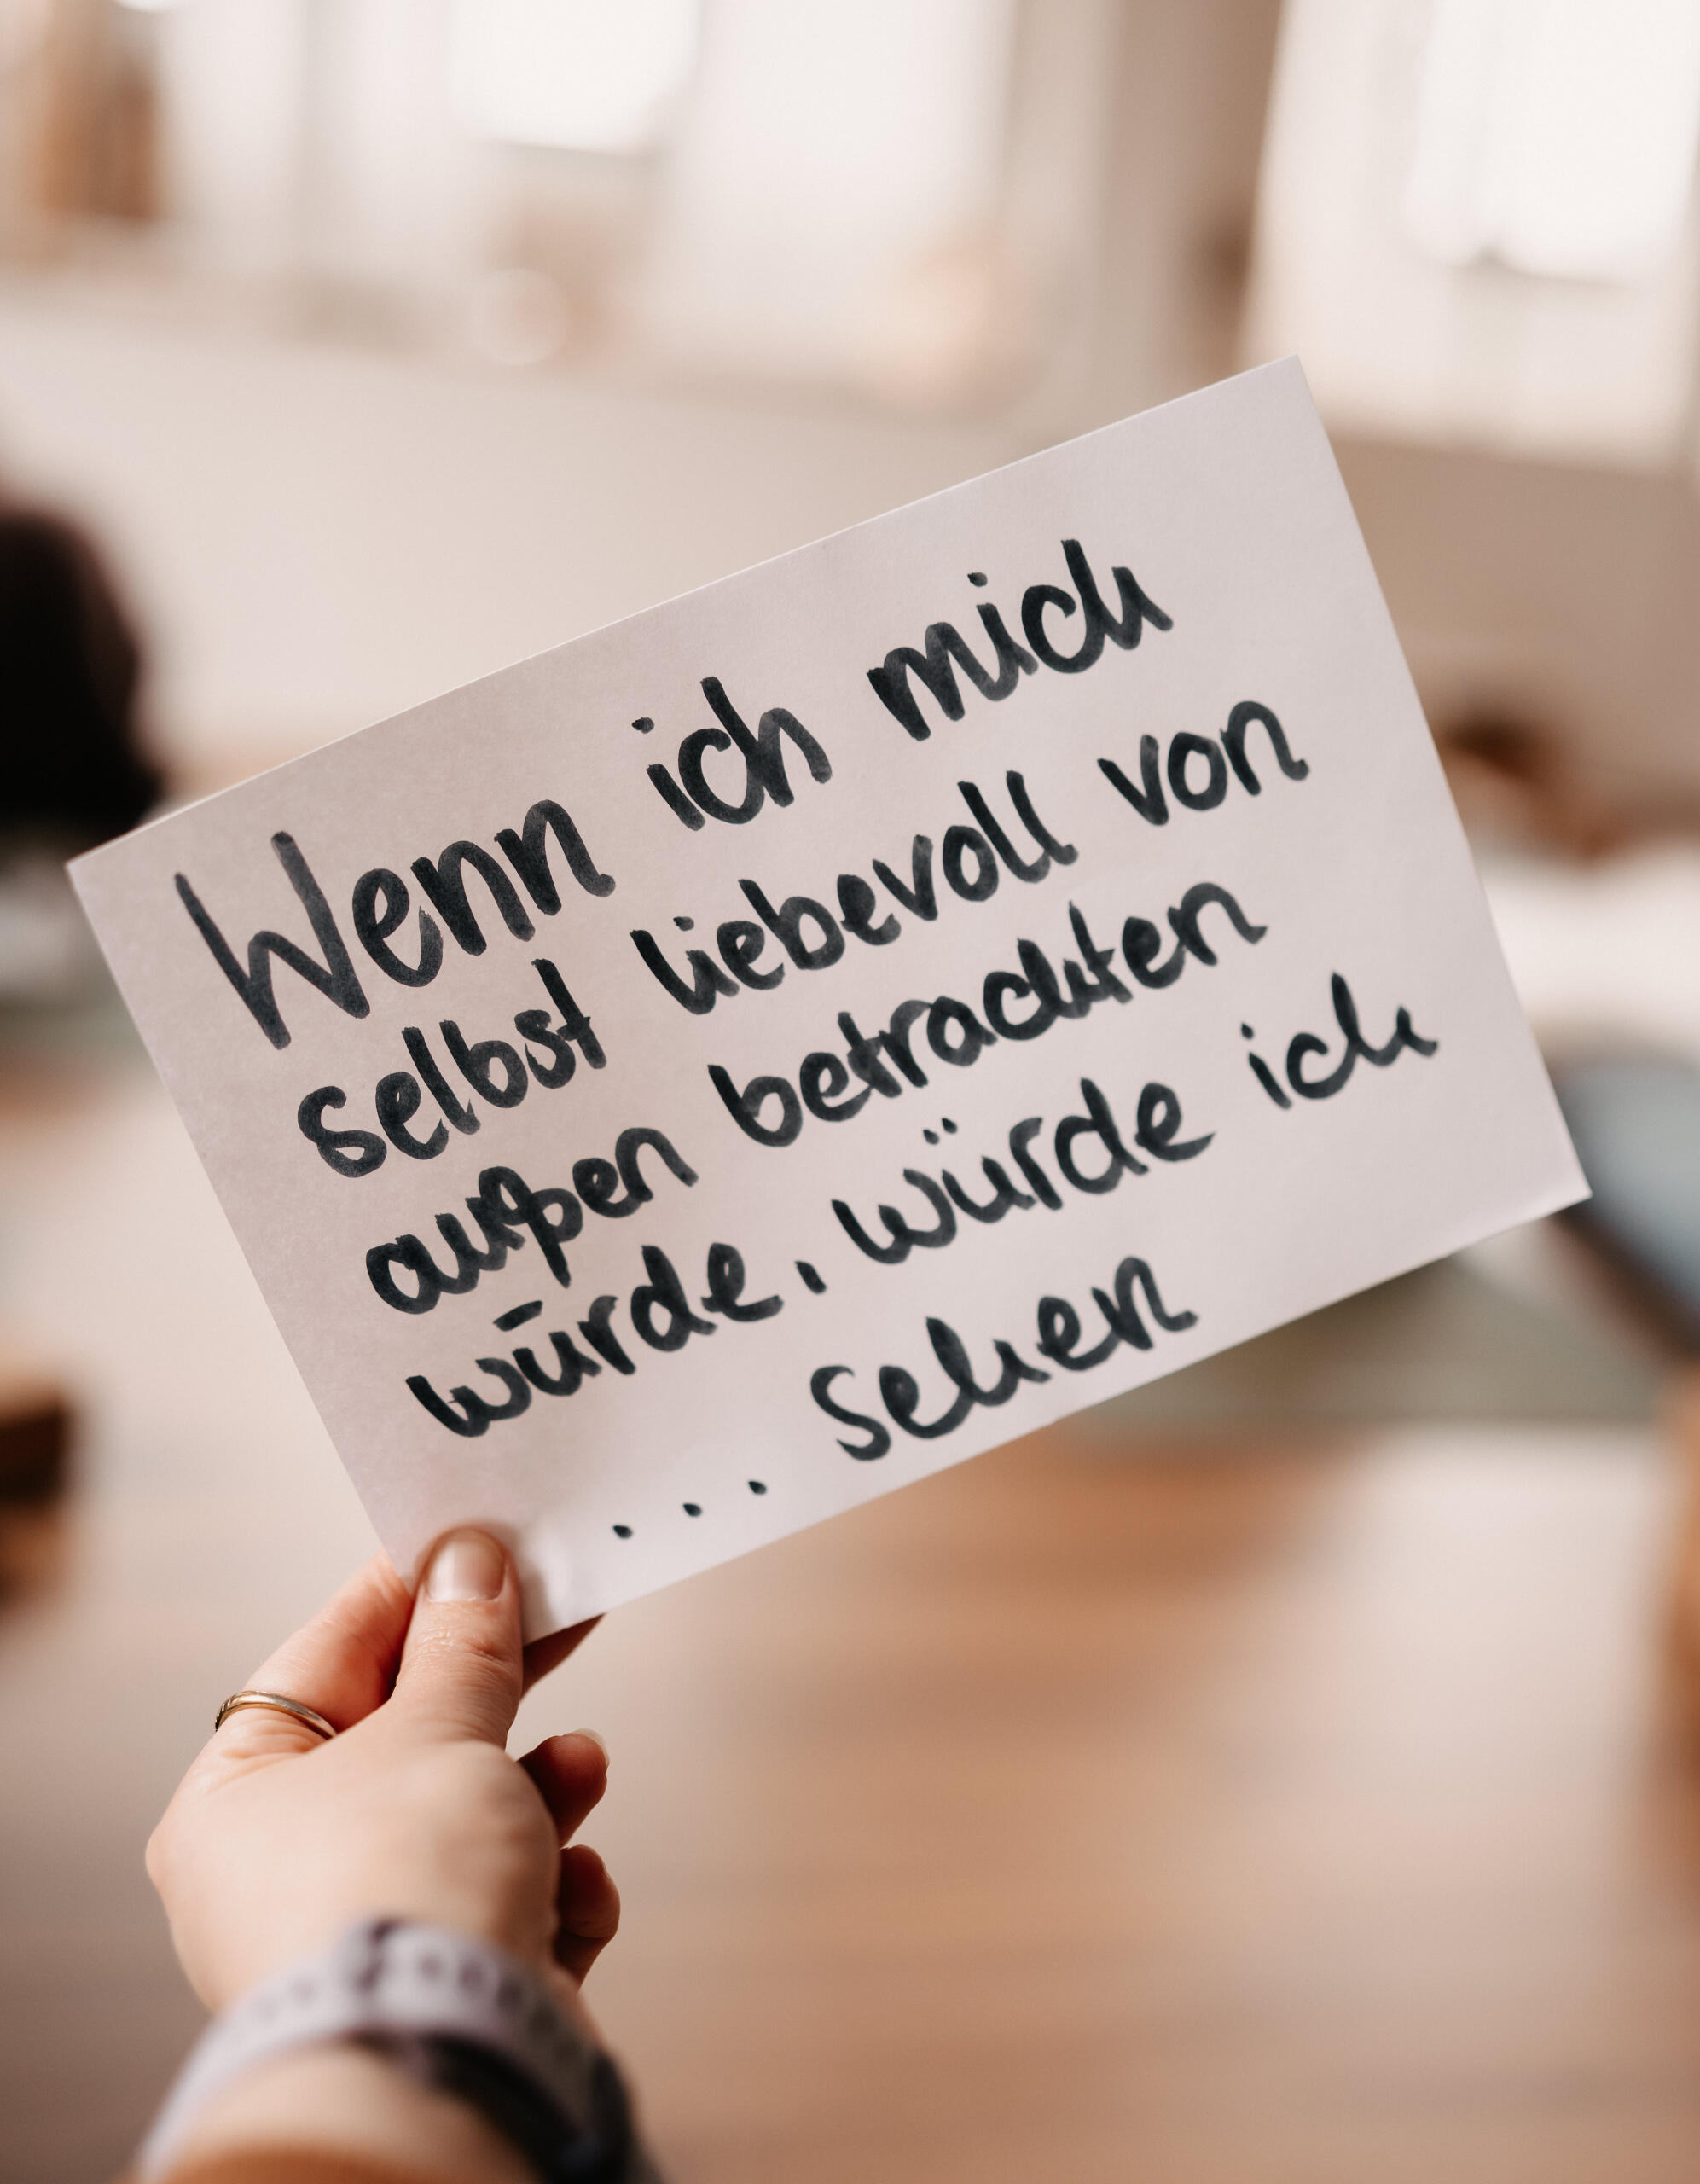 Wenn ich mich
selbst liebevoll von
außen betrachten
würde, würde ich
... sehen